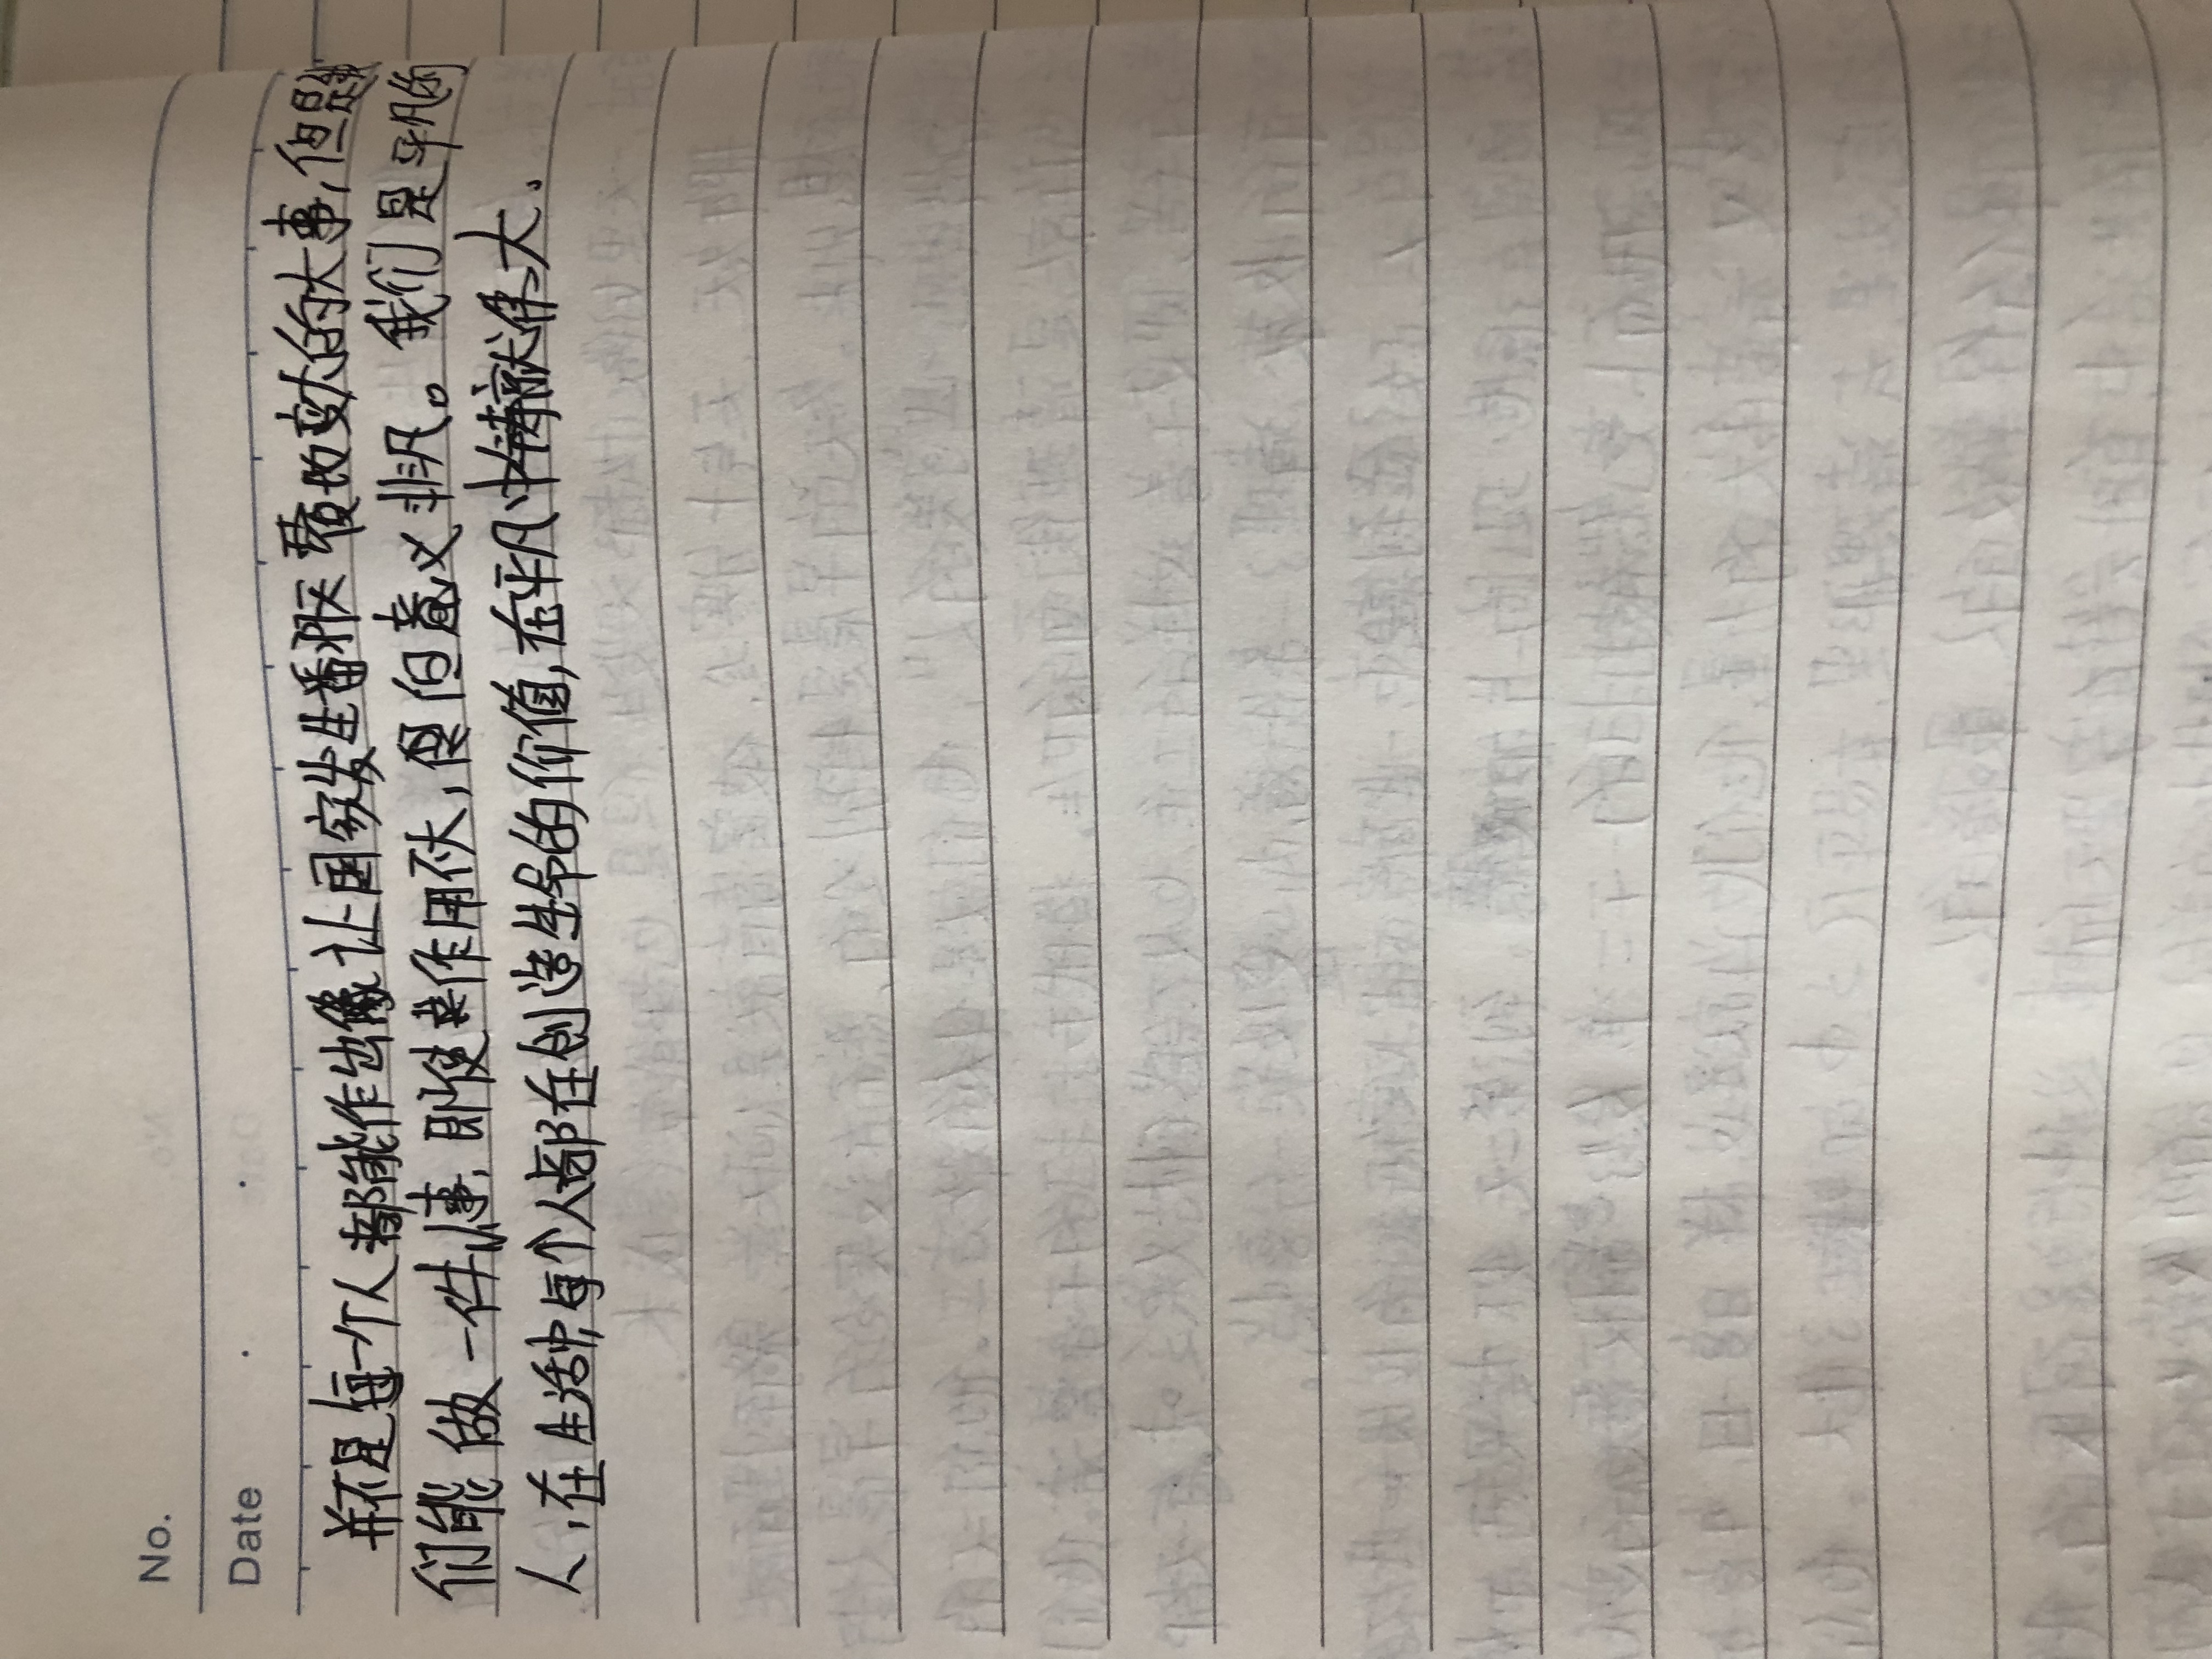 No.
Date
并不是每一个人都能作出像让国家发生翻天覆地变大的大事,但是我
们能做一件小事,即使作用不大,但意义非凡。我们是平凡的
人,在生活中,每个人都在创造生命的价值,在平凡中铸就伟大。